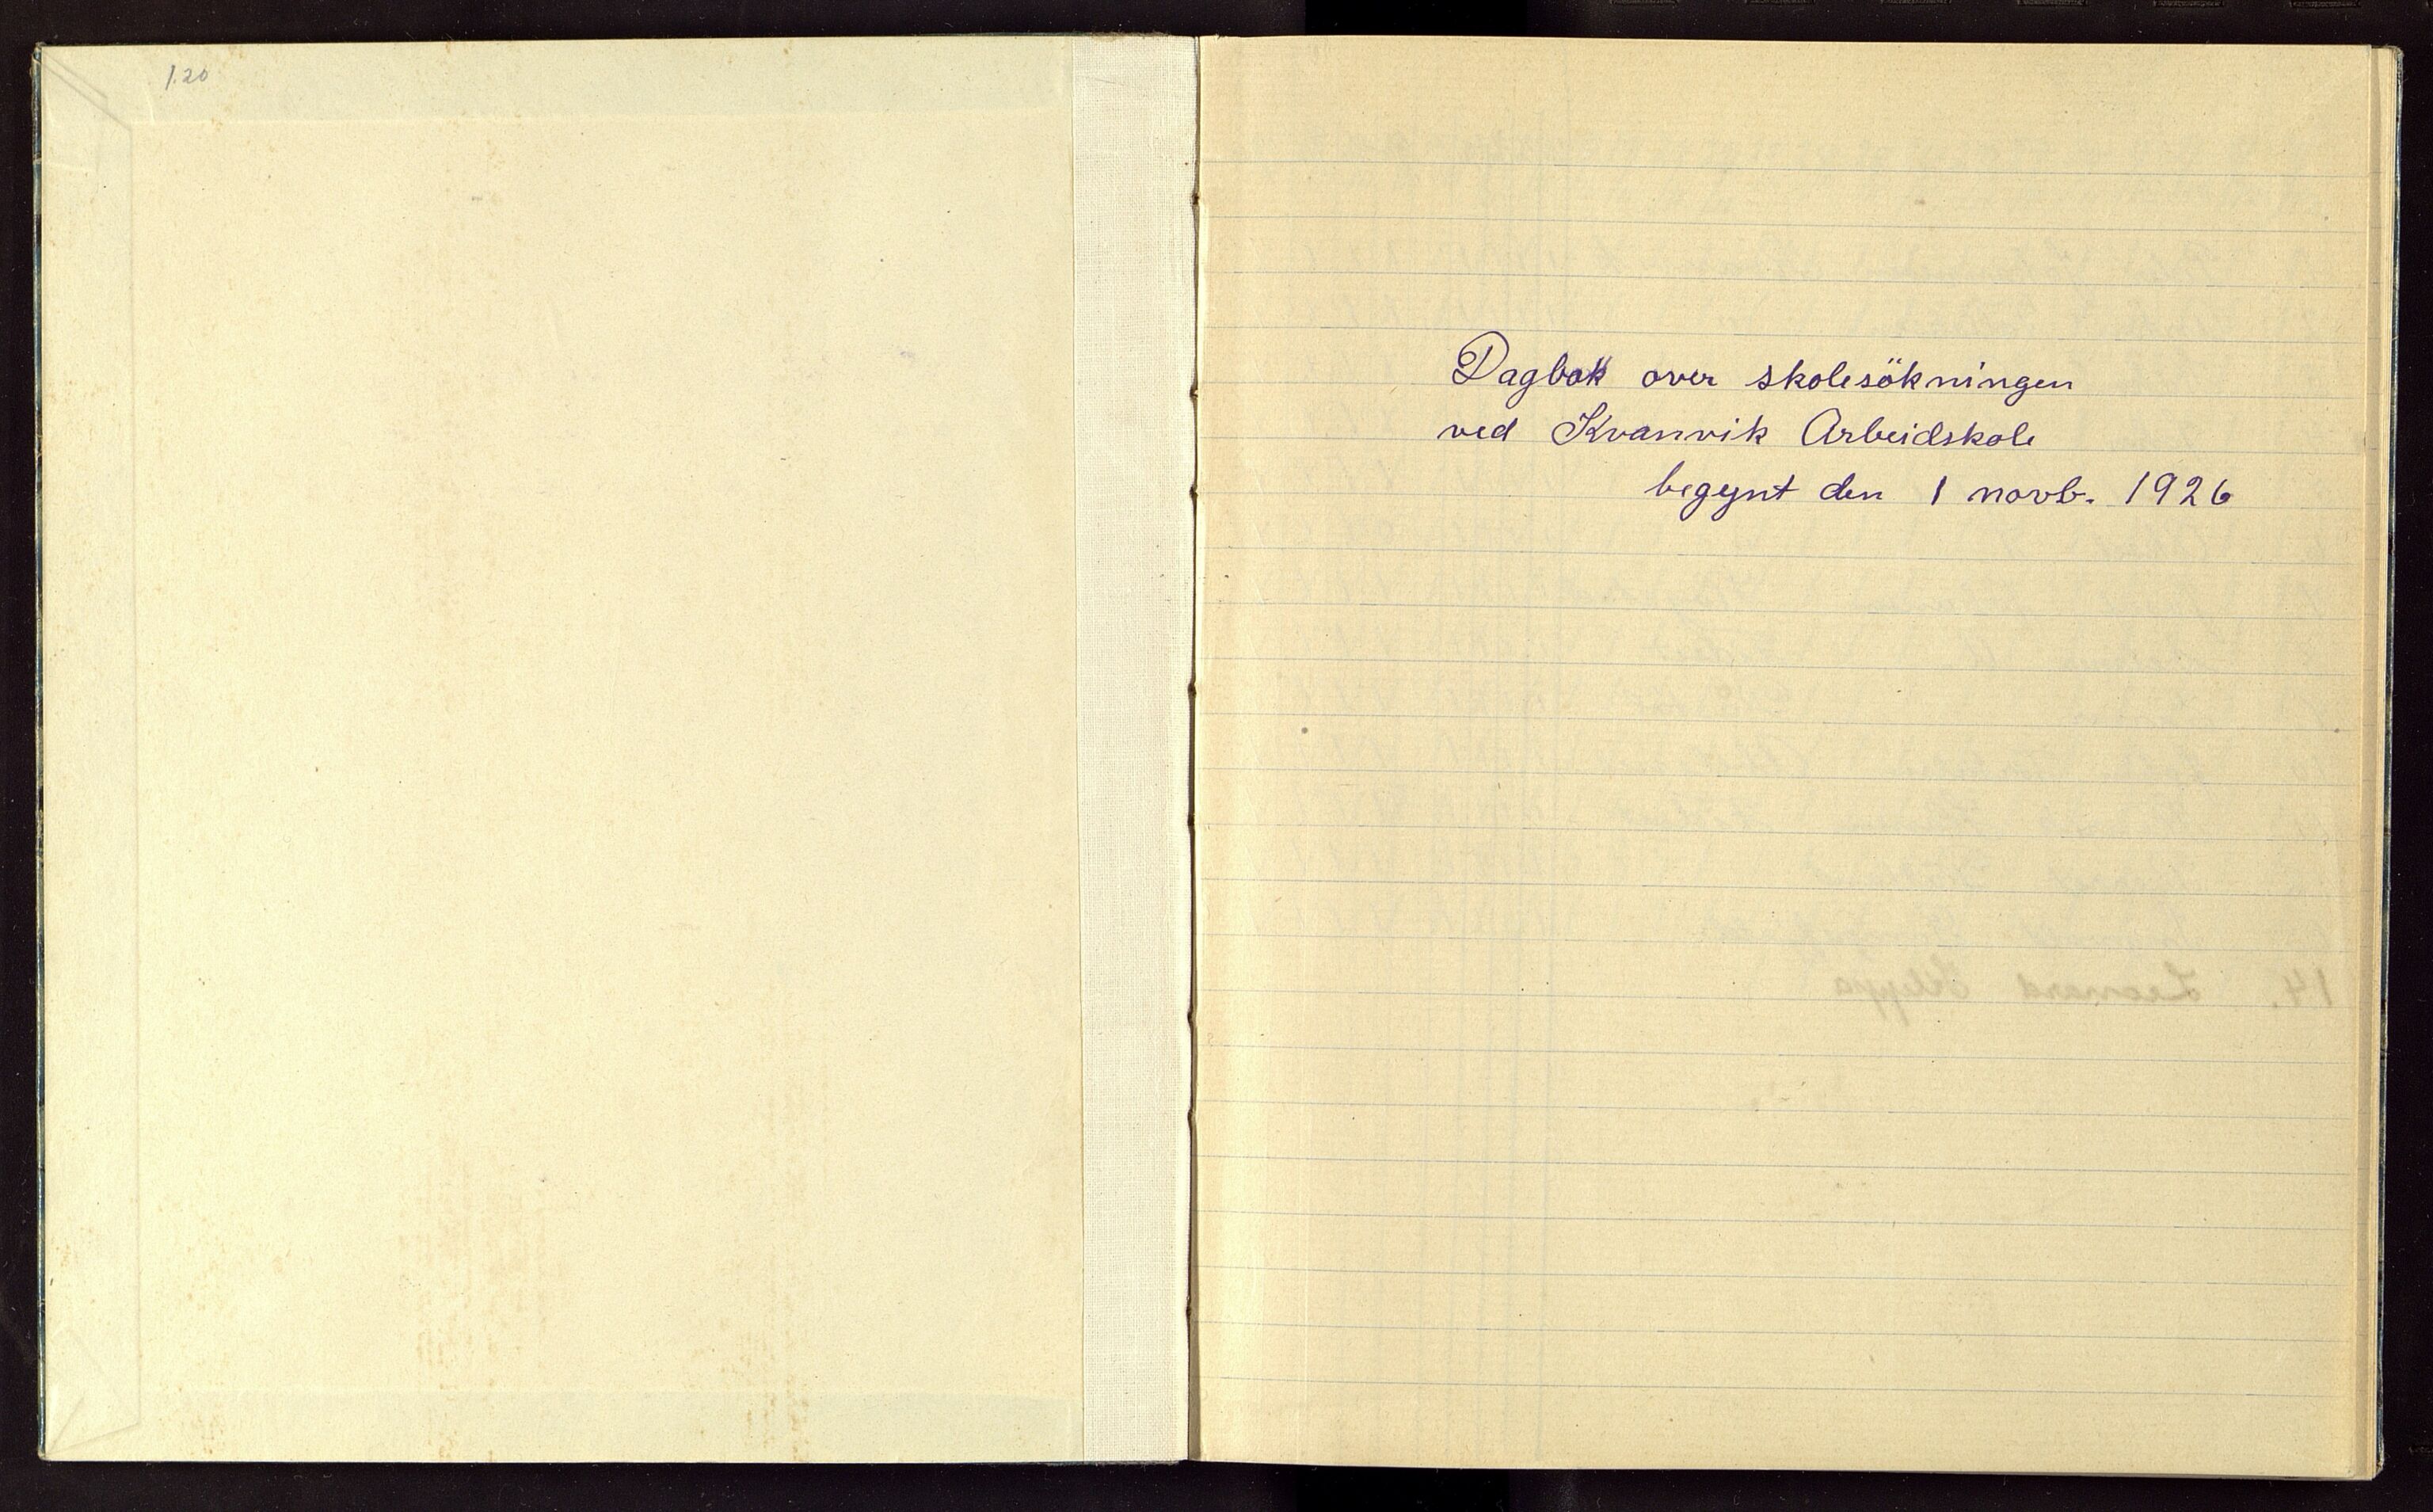 1.20
Dagbok over skolesökningen
ved Kvanvik Arbeidskole
begynt den 1 novb. 1926
14. Leonard Kleppa